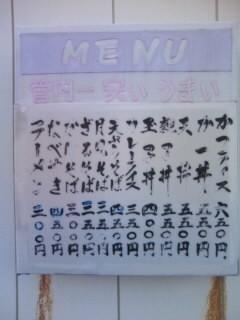 MENU
管内一 安い うまい
かつライス 六五〇円
カツ丼 五五〇円
天丼 五五〇円
親子丼 五〇〇円
玉子丼 四〇〇円
カレーライス 五〇円
天ざるそば
月見そば 三五〇円
ざるそば 三五〇円
かけそば 三〇〇円
なべやき 四五〇円
ラーメン 三〇〇円